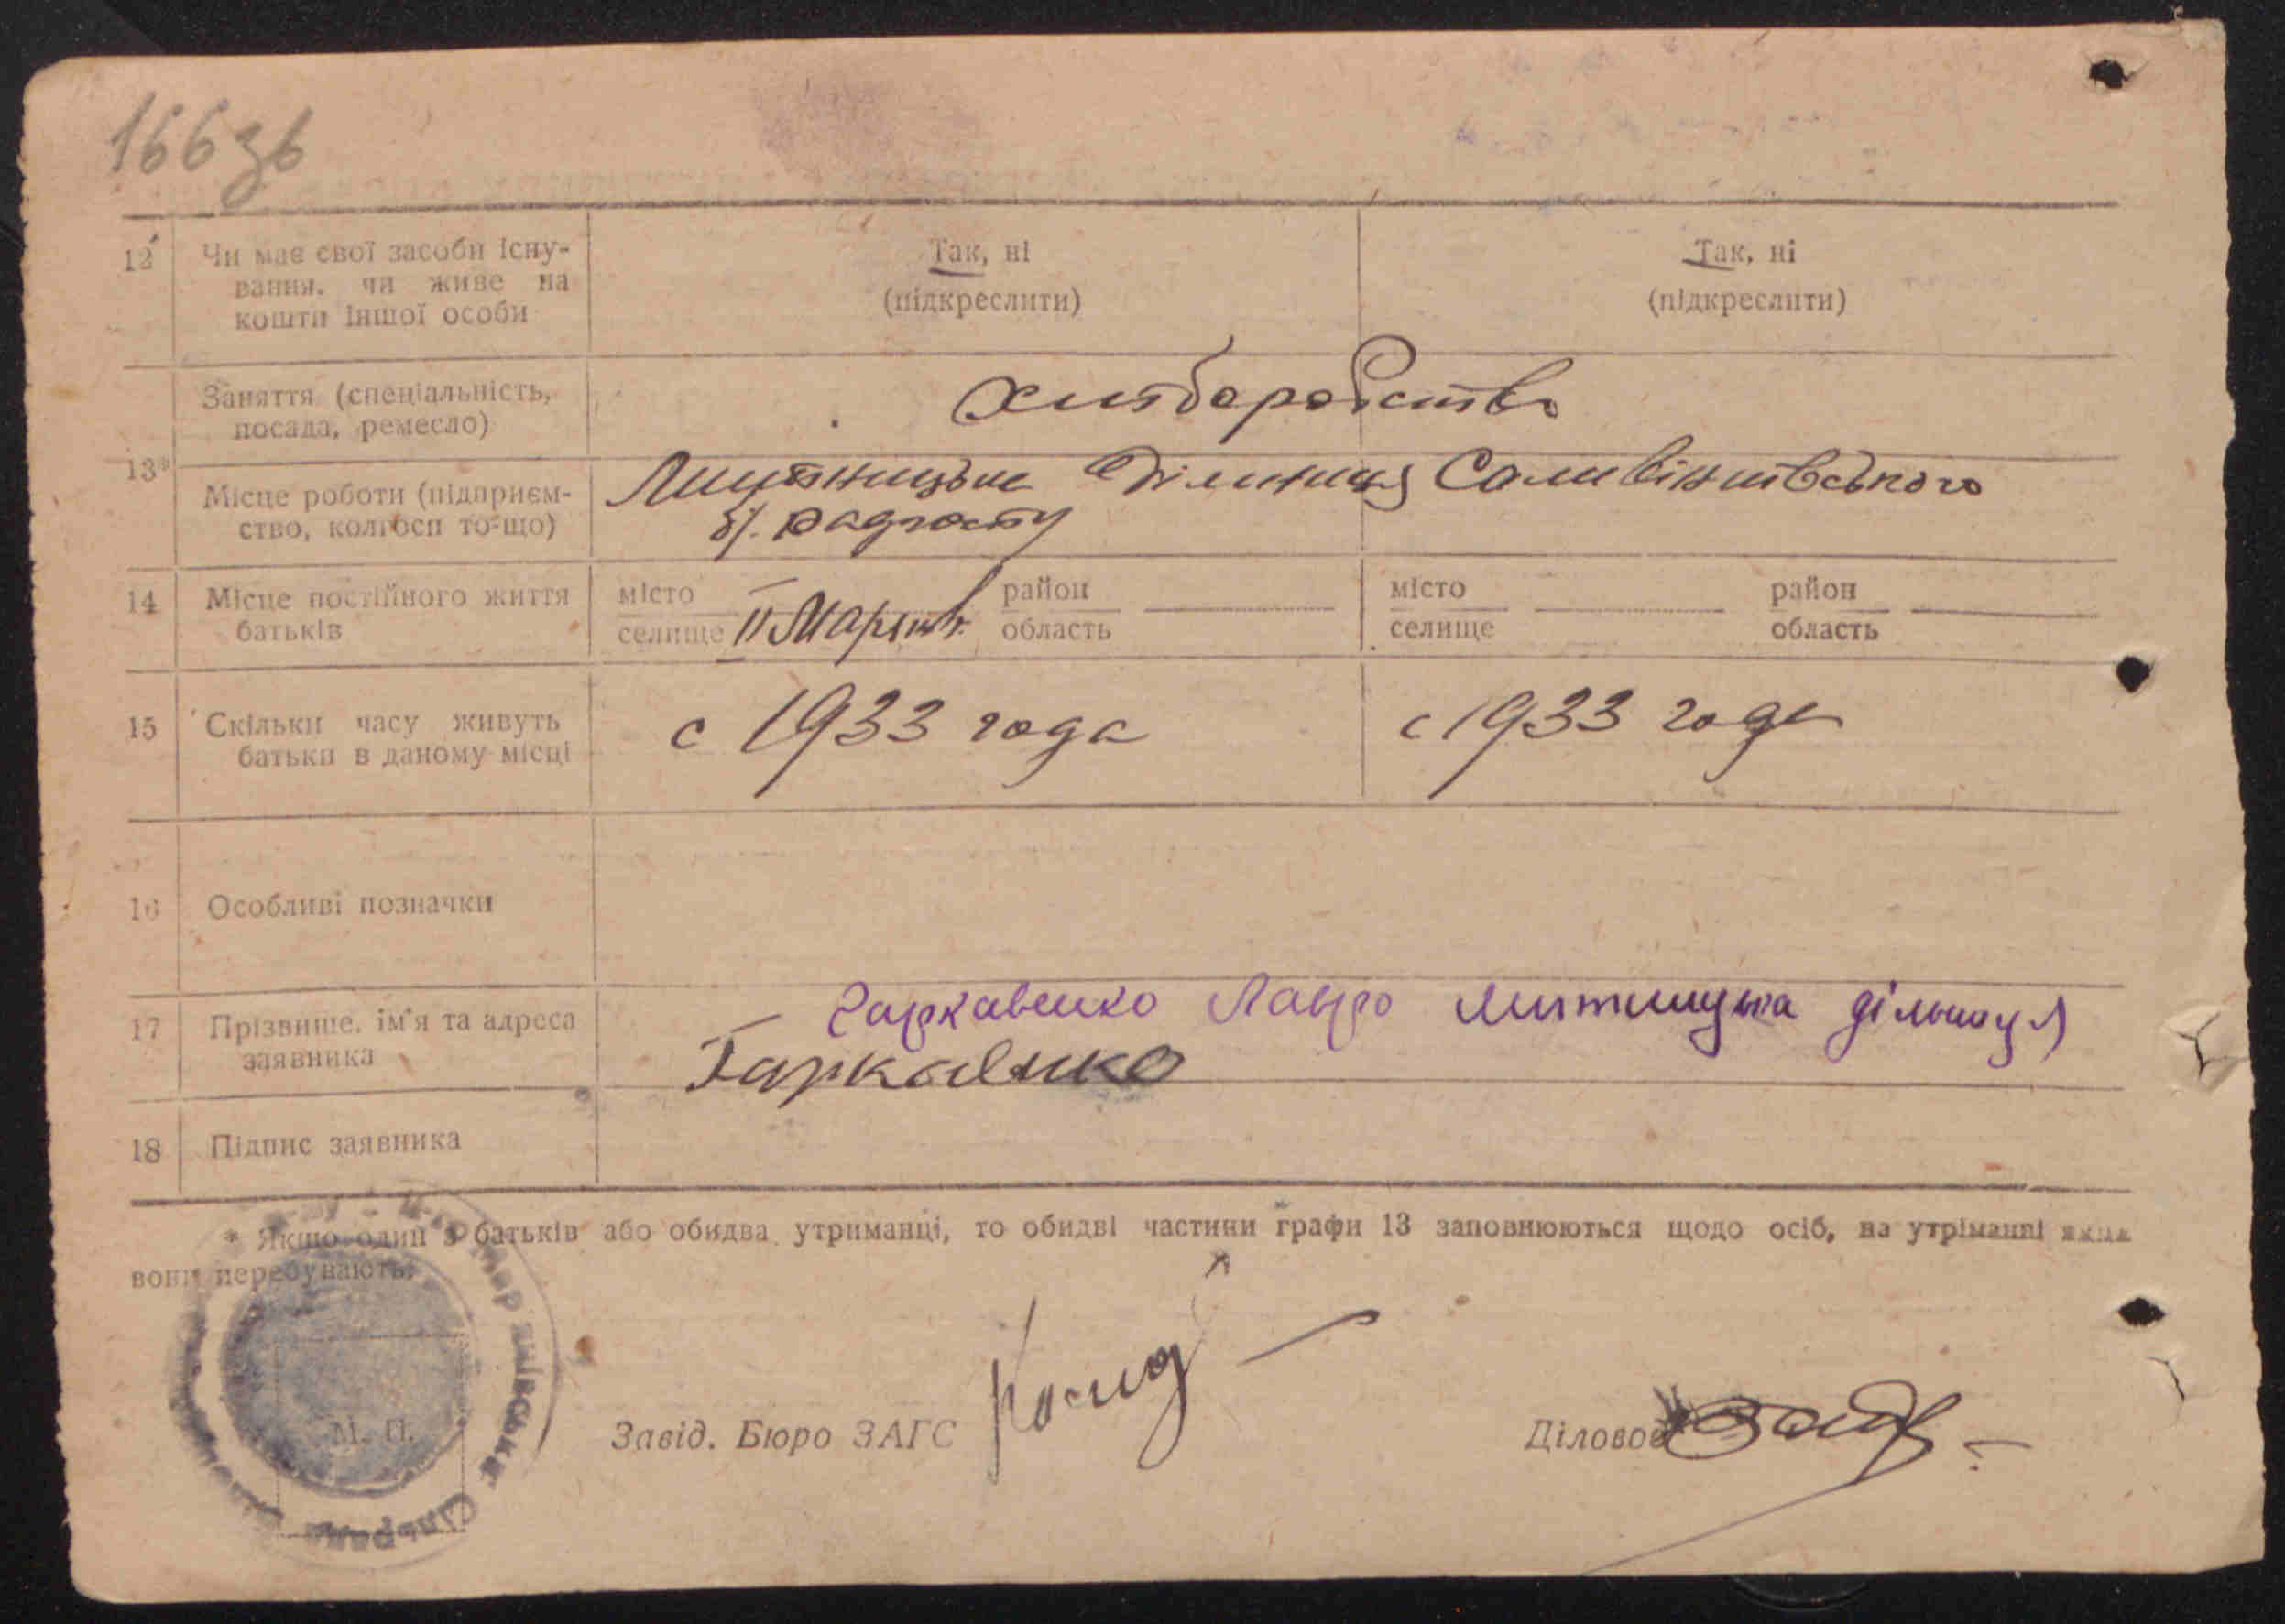 166 зв
12 Чи має свої засоби існу-
вання, чи живе на
кошти іншої особи
Так, ні
(підкреслити)
Так, ні
(підкреслити)
13*
Заняття (спеціальність,
посада, ремесло)
Хліборобство
Місце роботи (підприєм-
ство, колгосп то-що)
дільниця
б/. радгоспу
14 Місце постійного життя
батьків
місто
селище
II
район
область
місто
селище
район
область
15 Скільки часу живуть
батьки в даному місці
с 1933 года
с 1933 года
16 Особливі позначки
17 Прізвище, ім'я та адреса
заявника
Гаркавенко Лавро дільниця
Гаркавенко
18 Підпис заявника
* Якщо один з батьків або обидва утриманці, то обидві частини графи 13 заповнюються щодо осіб, на утріманні яких
вони перебувають.
М. П.
Завід. Бюро ЗАГС
Діловод